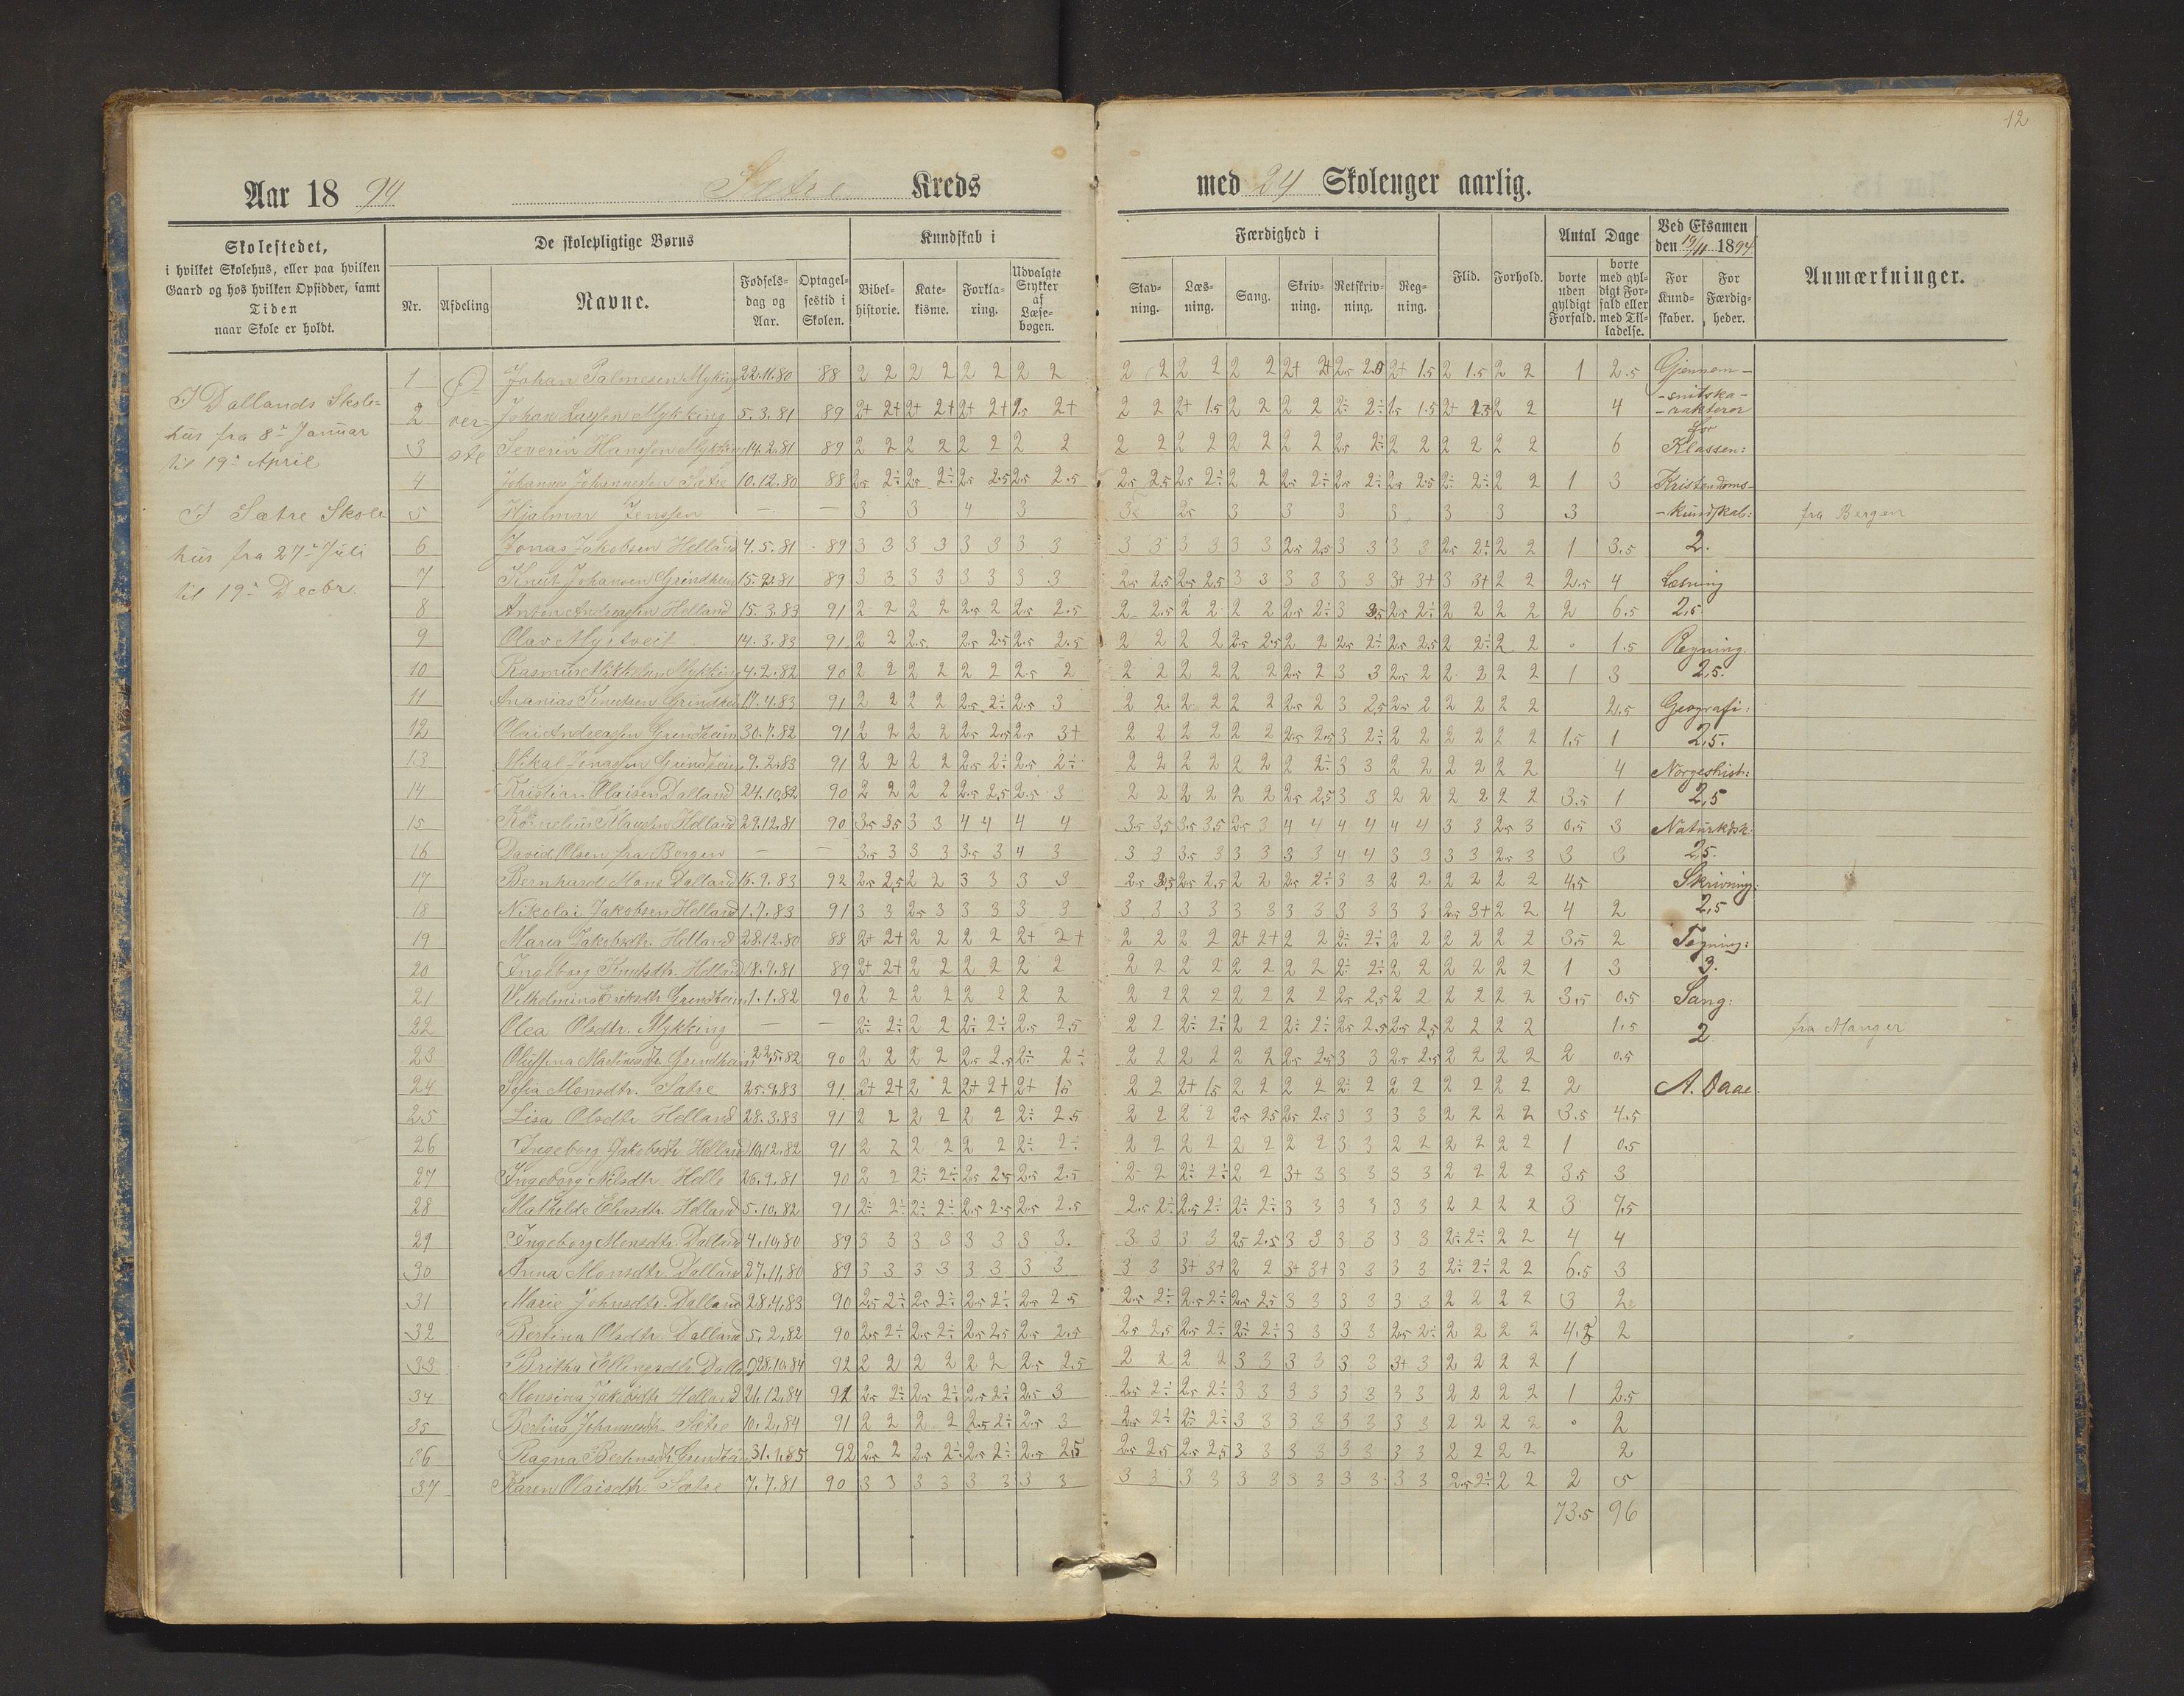 12
Aar 1894 Sætre Kreds med 24 Skoleuger aarlig.
Skolestedet,
i hvilket Skolehus, eller paa hvilken
Gaard og hos hvilken Opsidder, samt
Tiden
naar Skole er holdt.
De skolepligtige Børns
Nr. Afdeling Navne. Fødselsdag og Aar. Optagelsestid i Skolen.
Kundskab i
Bibelhistorie. Katekisme. Forklaring. Udvalgte Stykker af Læsebogen.
Færdighed i
Stavning. Læsning. Sang. Skrivning. Retskrivning. Regning. Flid. Forhold.
Antal Dage
borte uden gyldigt Forfald. borte med gyldigt Forfald eller med Tilladelse.
Ved Eksamen
den 19/11 1894.
For Kundskaber. For Færdigheder.
Anmærkninger.
I Dallands Skole-
hus fra 8de Januar
til 19de April
I Sætre Skole-
hus fra 27de Juli
til 19de Decbr.
Ø-
ver-
ste
1 Johan Palmesen Myking 22.11.80 88 2 2 2 2 2 2 2 2 2 2 2 2 2 2 2+ 2+ 2.5 2.0 2+ 1.5 2 1.5 2 2 1 2.5
2 Johan Mykking 5.3.81 89 2+ 2+ 2+ 2+ 2+ 2+ 2.5 2+ 2 2 2+ 1.5 2 2 2 2 2÷ 2÷ 1.5 1.5 2+ 2 2 4
3 Severin Hanssen Mykking 14.2.81 89 2 2 2 2 2 2 2 2 2 2 2 2 2 2 2 2 2.5 2÷ 2 2 2 2 2 2 6
4 Johannes Johannessen Sætre 10.12.80 88 2.5 2÷ 2.5 2÷ 2.5 2.5 2.5 2.5 2.5 2.5 2.5 2÷ 2 2 2.5 2÷ 2.5 2÷ 2.5 2.5 2÷ 2÷ 2 2 1 3
5 Hjalmar Jenssen — — 3 3 4 3 3 2.5 3 3 3 3 3 3 3 fra Bergen
6 Jonas Jakobsen Helland 4.5.81 89 3 3 3 3 3 3 3 3 3 3 3 3 3 3 2.5 2.5 3 3 3 3 2.5 2÷ 2 2 1 3.5
7 Knut Johansen Grindheim 15.2.81 89 3 3 3 3 3 3 3 3 2.5 2.5 2.5 2.5 3 3 3 3 3 3 3+ 3+ 3 3+ 2 2 2.5 4
8 Anton Andreassen Helland 15.3.83 91 2 2 2 2 2.5 2 2.5 2.5 2 2.5 2 2 2 2 2.5 2÷ 3 3.5 2.5 2÷ 2 2 2 2 2 6.5
9 Olav Myrtveit 14.3.83 91 2 2 2.5 2.5 2.5 2.5 2.5 2 2 2 2 2.5 2.5 2 2 2.5 2÷ 2.5 2.5 2 2÷ 2 2 . 1.5
10 Rasmus Mikkelsen Mykking 4.2.82 90 2 2 2 2 2 2 2.5 2 2 2 2 2 2 2 2.5 2 3 3 2.5 2 2 2 2 2 1 3
11 Ananias Knutsen Grindheim 17.4.83 91 2 2 2 2 2.5 2÷ 2.5 3 2 2 2 2 2 2 2.5 2 3 2.5 2.5 2 2 2 2 2 2.5
12 Olai Andreassen Grindheim 30.7.82 91 2 2 2 2 2.5 2.5 2.5 3+ 2 2 2 2 2 2 2.5 2.5 3 2÷ 2 2 2 2 2 2 1.5 1
13 Nikal Jonassen Grindheim 9.2.83 91 2 2 2 2 2.5 2÷ 2.5 2÷ 2 2 2 2 2 2 2 2÷ 3 3 2 2 2 2 2 2 4
14 Kristian Olaisen Dalland 24.10.82 90 2 2 2 2 2.5 2.5 2.5 3 2 2 2 2 2 2 2.5 2.5 3 3 2 2 2 2 2 2 3.5 1
15 Kornelius Helland 29.12.81 90 3.5 3.5 3 3 4 4 4 4 3.5 3.5 3.5 3.5 2.5 3 4 4 4 4 4 4 3 3 2.5 3 0.5 3
16 David Olsen fra Bergen — — 3.5 3 3 3 3.5 3 4 3 3 3 3.5 3 3 3 3 3 4 4 3 3 3 3 2.5 3 3 3
17 Bernhard Mons. Dalland 16.9.83 92 2.5 2.5 2 2 3 3 3 3 2.5 3.5 2.5 2.5 2 2 2.5 2÷ 3 3 2 2 2 2 2 2 4.5
18 Nikolai Jakobsen Helland 1.7.83 91 3 3 2.5 3 3 3 3 3 3 3 3 3 3 3 3 3 3 3 3 3 2.5 3+ 2 2 4 2
19 Maria Jakobsdtr. Helland 28.12.80 88 2+ 2+ 2 2 2 2 2+ 2+ 2 2 2 2 2+ 2+ 2 2 2÷ 2÷ 2 2 2 2 2 2 3.5 2
20 Ingeborg Knutsdtr. Helland 18.7.81 89 2+ 2+ 2 2 2 2 2 2 2 2 2 2 2 2 2 2 2÷ 2÷ 2 2 2 2 2 2 1 3
21 Vilhelmine Eriksdtr. Grindheim 1.1.82 90 2 2 2 2 2 2 2 2 2 2 2 2 2 2 2 2 2.5 2.5 2 2 2 2 2 2 3.5 0.5
22 Olea Olsdtr. Mykking — — 2÷ 2÷ 2 2 2÷ 2÷ 2.5 2.5 2 2 2÷ 2÷ 2 2 2÷ 2÷ 2.5 2.5 2.5 2.5 2 2 2 2 1.5 fra Manger
23 Oluffina Martinusdtr. Grindheim 22.5.82 90 2 2 2 2 2.5 2.5 2÷ 2÷ 2 2 2 2 2 2 2.5 2.5 3 3 2.5 2.5 2 2 2 2 2 0.5
24 Sofia Monsdtr. Sætre 25.9.83 91 2+ 2+ 2 2 2+ 2+ 2+ 1.5 2 2 2+ 1.5 2 2 2 2 2÷ 2 2 2 2 2 2 2 2
25 Lisa Olsdtr. Helland 28.3.83 91 2 2 2 2 2 2 2÷ 2.5 2 2 2 2 2.5 2.5 2.5 2.5 3 3 3 3 2 2 2 2 3.5 4.5
26 Ingeborg Jakobsdtr. Helland 10.12.82 91 2 2 2 2 2 2 2÷ 2÷ 2 2 2 2 2 2 2 2 3 3 2 2 2 2 2 2 1 0.5
27 Ingeborg Nilsdtr. Helle 26.9.81 90 2 2 2÷ 2÷ 2.5 2.5 2.5 2.5 2 2 2÷ 2÷ 2 2 3+ 3 3 3 3 3 2 2 2 2 3.5 3
28 Mathilde Eliasdtr. Helland 5.10.82 91 2÷ 2÷ 2÷ 2÷ 2.5 2.5 2.5 2.5 2.5 2÷ 2.5 2÷ 2÷ 2÷ 3 3 3 3 3 3 2 2 2 2 3 7.5
29 Ingeborg Monsdtr. Dalland 4.10.80 89 3 3 3 3 3 3 3 3. 3 3 3 3 2.5 2.5 3 3 3 3 3 3 2÷ 2÷ 2 2 4 4
30 Anna Monsdtr. Dalland 27.11.80 89 3 3 3 3 3 3 3 3 3 3 3+ 3+ 2 2 3+ 3+ 3 3 3 3 2÷ 2÷ 2 2 6.5 3
31 Marie Johnsdtr. Dalland 28.4.83 90 2.5 2÷ 2.5 2÷ 2.5 2÷ 2.5 2.5 2.5 2÷ 2.5 2÷ 2.5 2.5 3 3 3 3 3 3 2 2 2 2 3 2
32 Bertina Olsdtr. Dalland 5.2.82 90 2.5 2÷ 2.5 2÷ 2.5 2.5 2.5 2.5 2.5 2.5 2.5 2÷ 2÷ 2÷ 3 3 3 3 2.5 2÷ 2 2 2 2 4.5 2
33 Britha Ellingsdtr. Dalland 28.10.84 92 2 2 2 2 2 2 2.5 2.5 2 2 2 2 3 3 3 3 3 3 3+ 3 2 2 2 2 1
34 Monsina Jakobsdtr. Helland 21.12.84 92 2.5 2÷ 2.5 2÷ 2.5 2÷ 2.5 3 2.5 2÷ 2.5 2÷ 3 3 3 3 3 3 3 3 2 2 2 2 1 2.5
35 Bertina Johannesdtr. Sætre 10.2.84 91 2 2 2 2 2.5 2÷ 2.5 3 2.5 2÷ 2÷ 2÷ 3 3 3 3 3 3 3 3 2 2 2 2 . 2
36 Ragna Grindheim 31.1.85 92 2.5 2 2.5 2÷ 2.5 2÷ 2.5 2.5 2.5 2.5 2.5 2.5 3 3 3 3 3 3 3 3 2 2 2 2 2
37 Karen Olaisdtr. Sætre 7.7.81 90 3 3 3 3 3 3 3 3 3 3 3 3 3 3 3 3 3 3 3 3 2.5 2÷ 2 2 2 5
73.5 96
Gjennem-
-snitska-
-rakterer
for
Klassen:
Kristendoms-
-kundskab:
2.
Læsning
2,5
Regning.
2,5.
Geografi:
2,5.
Norgeshist:
2,5
Naturkdsk:
2,5.
Skrivning:
2,5
Tegning:
3.
Sang:
2
A. Daae.